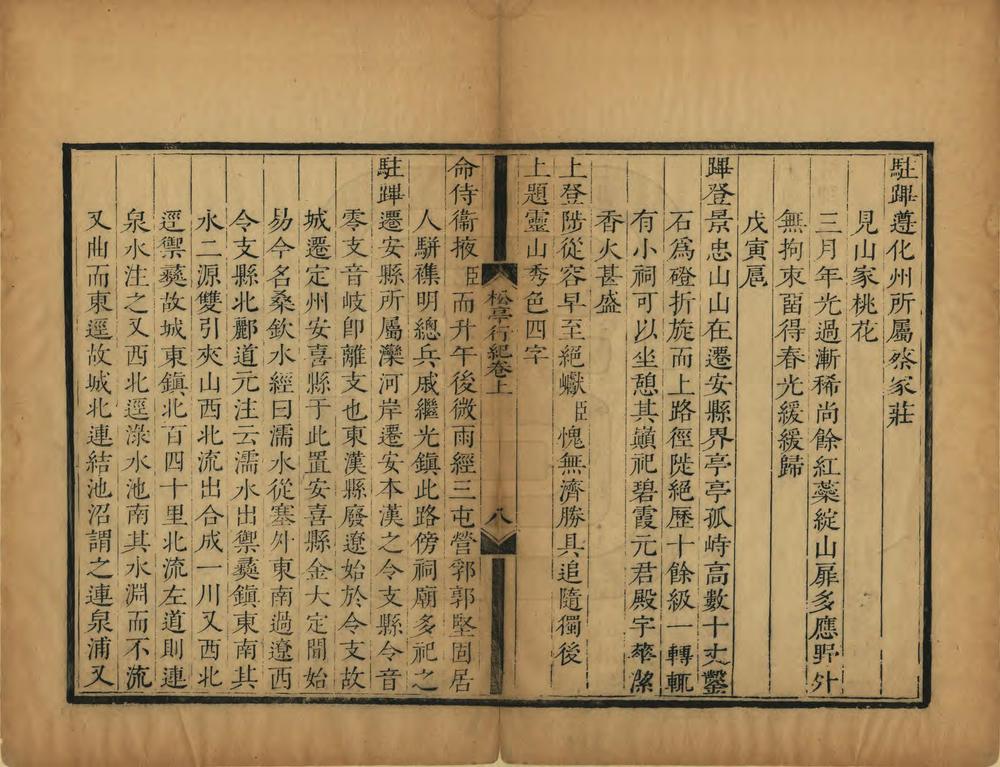 駐蹕遵化州所屬蔡家莊
見山家桃花
三月年光過漸稀尚餘紅蘂綻山扉多應野外
無拘束畱得春光緩緩歸
戊寅扈
蹕登景忠山山在遷安縣界亭亭孤峙高數十丈鑿
石爲磴折旋而上路徑陡絕歷十餘級一轉輒
有小祠可以坐憩其巔祀碧霞元君殿宇華潔
香火甚盛
上登陟從容早至絕巘臣愧無濟勝具追隨獨後
上題靈山秀色四字
松亭行紀卷上
八
命侍衞掖臣而升午後微雨經三屯營郭郭堅固居
人駢襍明總兵戚繼光鎮此路傍祠廟多祀之
駐蹕遷安縣所屬灤河岸遷安本漢之令支縣令音
零支音岐卽離支也東漢縣廢遼始於令支故
城遷定州安喜縣于此置安喜縣金大定間始
易今名桑欽水經曰濡水從塞外東南過遼西
令支縣北酈道元注云濡水出禦彝鎮東南其
水二源雙引夾山西北流出合成一川又西北
逕禦彝故城東鎮北百四十里北流左道則連
泉水注之又西北逕淥水池南其水淵而不流
又曲而東逕故城北連結池沼謂之連泉浦又